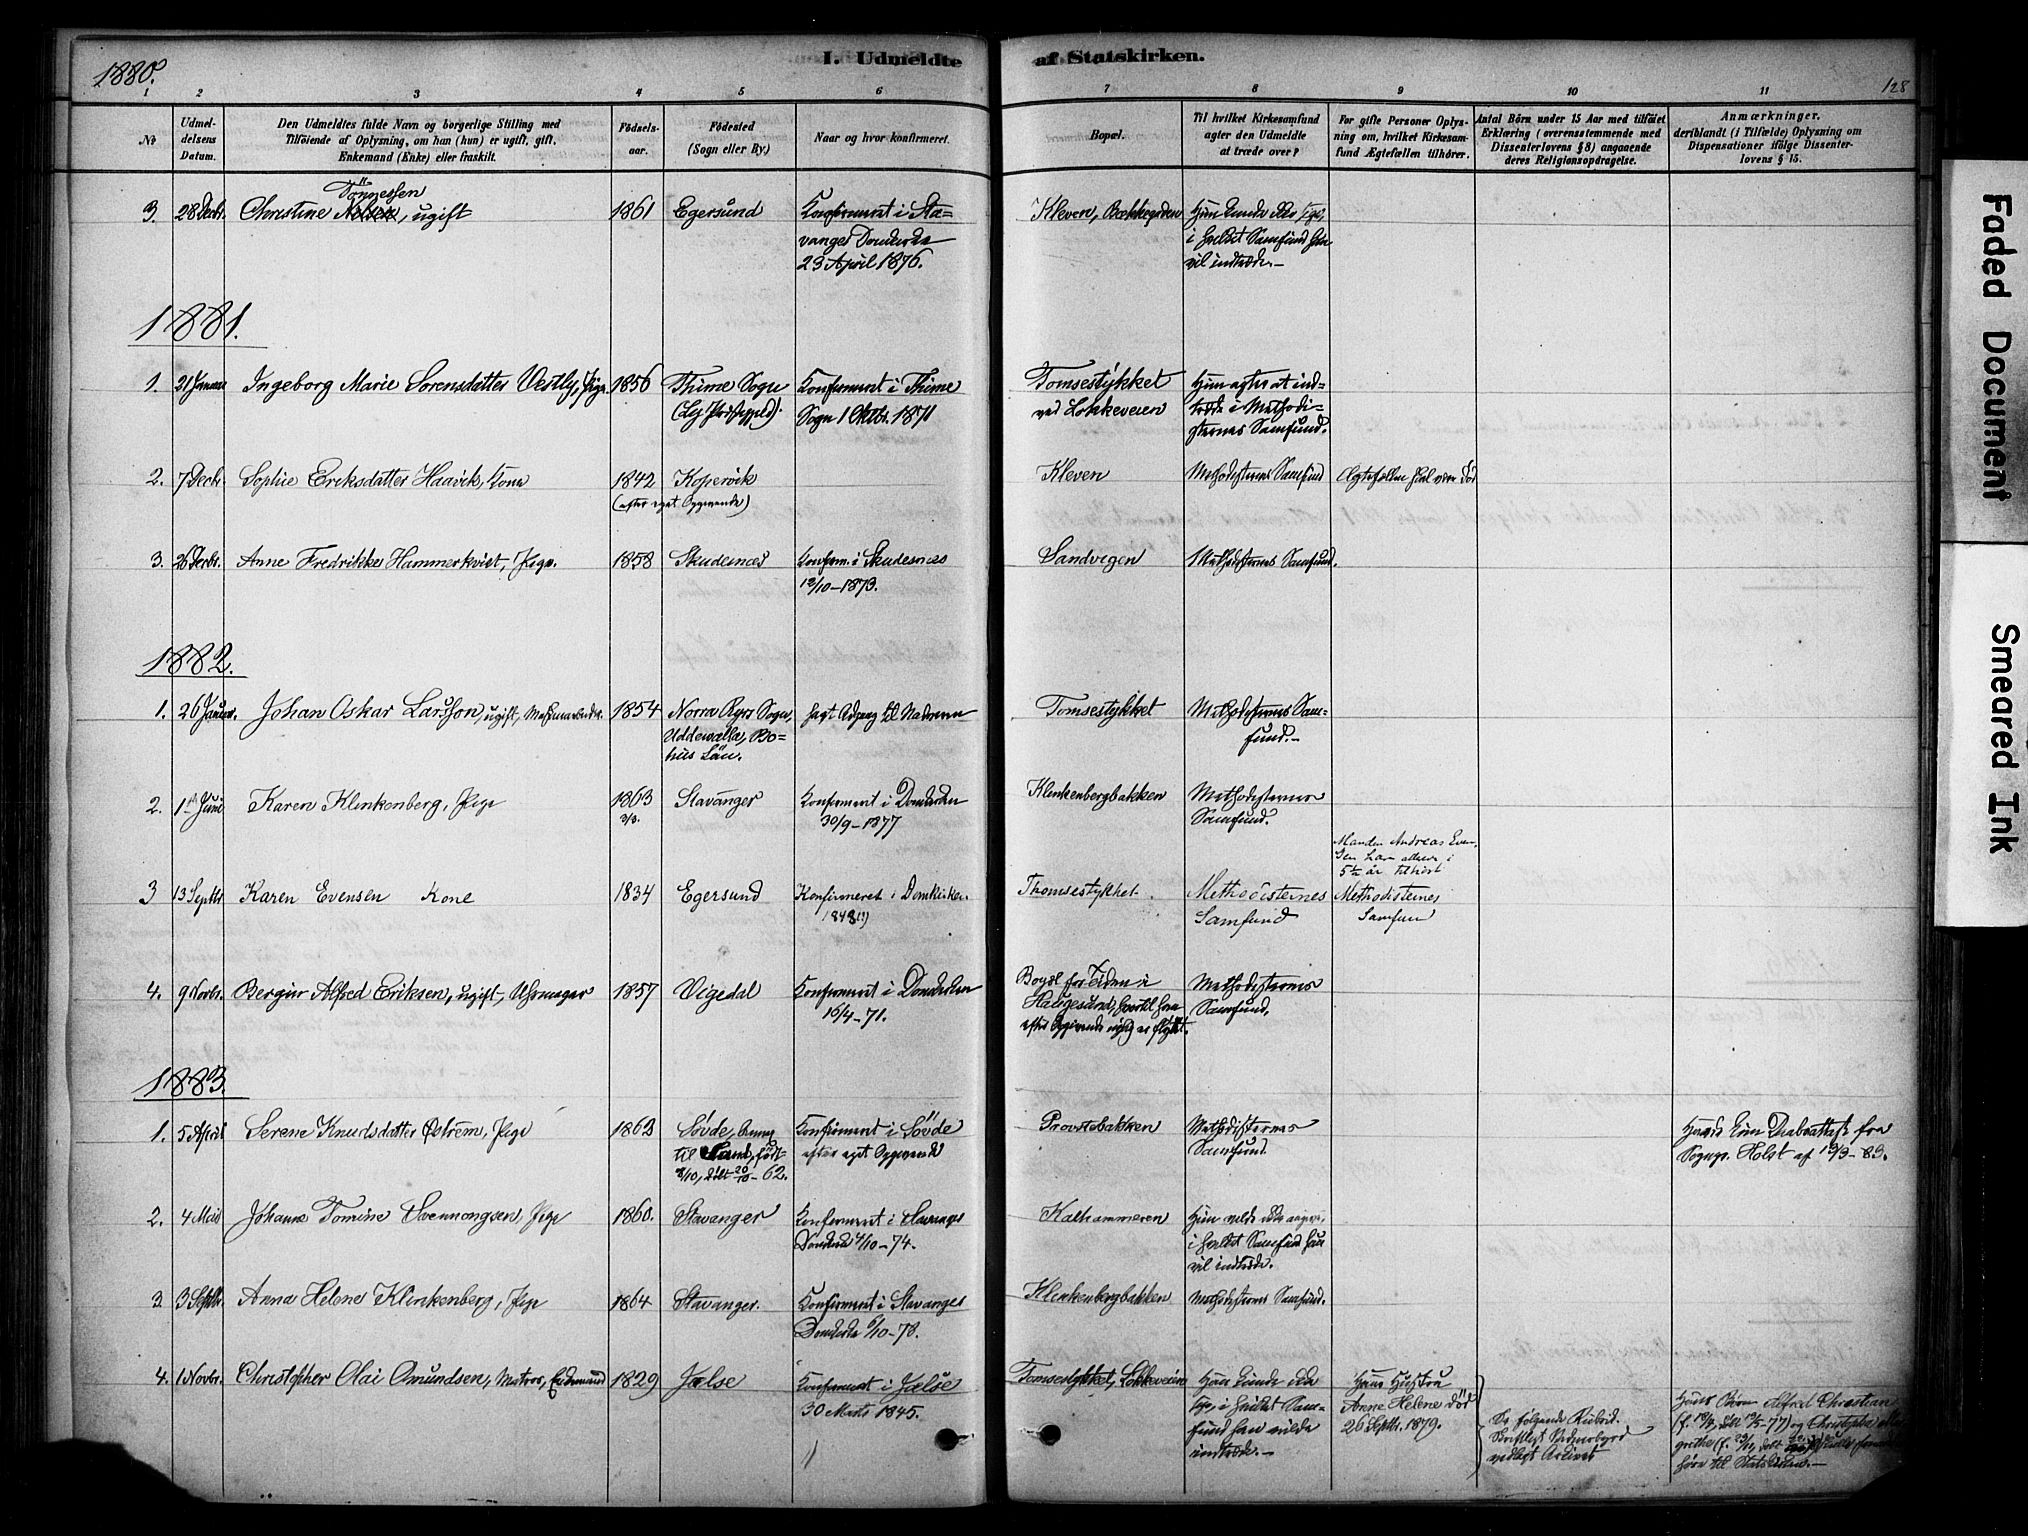 1880.
I. Udmeldte af Statskirken.
128
1 2 3 4 5 6 7 8 9 10 11
No
Udmeldelsens Datum.
Den Udmeldtes fulde Navn og borgerlige Stilling med
Tilføiende af Oplysning, om han (hun) er ugift, gift,
Enkemand (Enke) eller fraskilt.
Fødselsaar.
Fødested
(Sogn eller By.)
Naar og hvor konfirmeret.
Bopæl.
Til hvilket Kirkesamfund
agter den Udmeldte
at træde over?
For gifte Personer Oplysning
om, hvilket Kirkesamfund
Ægtefællen tilhører.
Antal Børn under 15 Aar med tilføiet
Erklæring (overensstemmende med
Dissenterlovens § 8) angaaende
deres Religionsopdragelse.
Anmærkninger.
deriblandt (i Tilfælde) Oplysning om
Dispensationer ifølge Dissenterlovens § 15.
Tönnessen
3. 28 Decbr. Christine, ugift 1861 Egersund Konfirmeret i Sta-
vanger Domkirke
23 April 1876.
Kleven, Bækkegaden
Hun kunde ikke sige,
i hvilket Samfund hun
vil indtræde.-
1881.
1. 21 Januar Ingeborg Marie Sørensdatter Vestly, Pige 1856 Thime Sogn
(Lye Præstegjeld).
Konfirmeret i Thime
Sogn 1 Oktbr. 1871
Tomsestykket
ved Løkkeveien
Hun agter at ind-
træde i Methodi-
sternes Samfund.
2. 7 Decbr. Sophie Eriksdatter Haavik, Kone 1842 Kopervik
(efter eget Opgivende)
Kleven
Methodisternes Samfund
Ægtefællen skal være Død
3. 28 Decbr. Anne Fredrikke Hammerkvist, Pige. 1858 Skudesnæs
Konfirm. i Skudesnæs
12/10-1873.
Sandvigen
Methodisternes Samfund.
1882.
1. 26 Januar. Johan Oskar Larsson, ugift, 1854 Norra Ryrs Sogn,
Uddewalla, Bo-
hus Län.
havt Adgang til Nadveren
Tomsestykket
Methodisternes Sam-
fund.-
2. 1ste Juni Karen Klinkenberg, Pige 1863 Stavanger
3/3.
Konfirmeret i Domkirken
30/9-1877
Klinkenbergbakken
Methodisternes
Samfund.
3 13 Septbr Karen Evensen Kone 1834 Egersund
Konfirmeret i Domkirken.
1848(!)
Thomsestykket.
Methodisternes
Samfund
Manden Andreas Even-
sen har allerede i
5½ år tilhørt
Methodisternes
Samfun
4. 9 Novbr. Bergur Alfred Eriksen, ugift, Uhrmager 1857 Vigedal
Konfirmeret i Domkirken
16/4-71.
Bopæl for Tiden i
Haugesund, hvortil han
efter Opgivende nylig er flyttet.
Methodisternes
Samfund.
1883.
1. 5 April Serene Knudsdatter Østrem, Pige 1862 Søvde, Annex
til Sand, født
8/10, døbt 20/10-62.
Konfirmeret i Søvde
efter eget Opgivende
Provstebakken
Methodisternes
Samfund.
Havde sin Daabsattest fra
Sognep. Holst af 19/3-83.
2. 4 Mai Johanne Tomine Svennongsen, Pige 1860. Stavanger
Konfirmeret i Stavanger
Domkirke 4/10-74.
Kalhammeren
Hun vilde ikke angive,
i hvilket Samfund hun
vil indtræde.
3. 3 Septbr. Anna Helene Klinkenberg, Pige 1864 Stavanger.
Konfirmeret i Stavanger
Domkirke 6/10-78.
Klinkenbergbakken
Methodisternes Samfund.
4. 1 Novbr. Christopher Olai Omundsen, Matros, Enkemand 1829 Jælse
Konfirmeret i Jælse
30 Marts 1845.
Tomsestykket, Løkkeveien
Han kunde ikke
sige, i hvilket Sam-
fund han vilde
indtræde.-
Hans Hustru
Anne Helene død
26 Septbr. 1879.
Se følgende Rubrik.
Skriftligt Vidnesbyrd
vedlagt Arkivet
Hans Børn Alfred Christian
og Christopher
høre til Statskirken.-
Faded Document
Smeared Ink